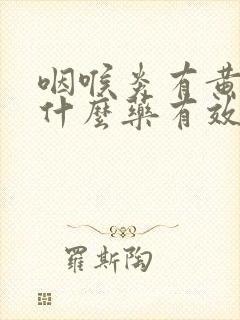 咽喉炎有黄
什麼藥有效
羅斯陶